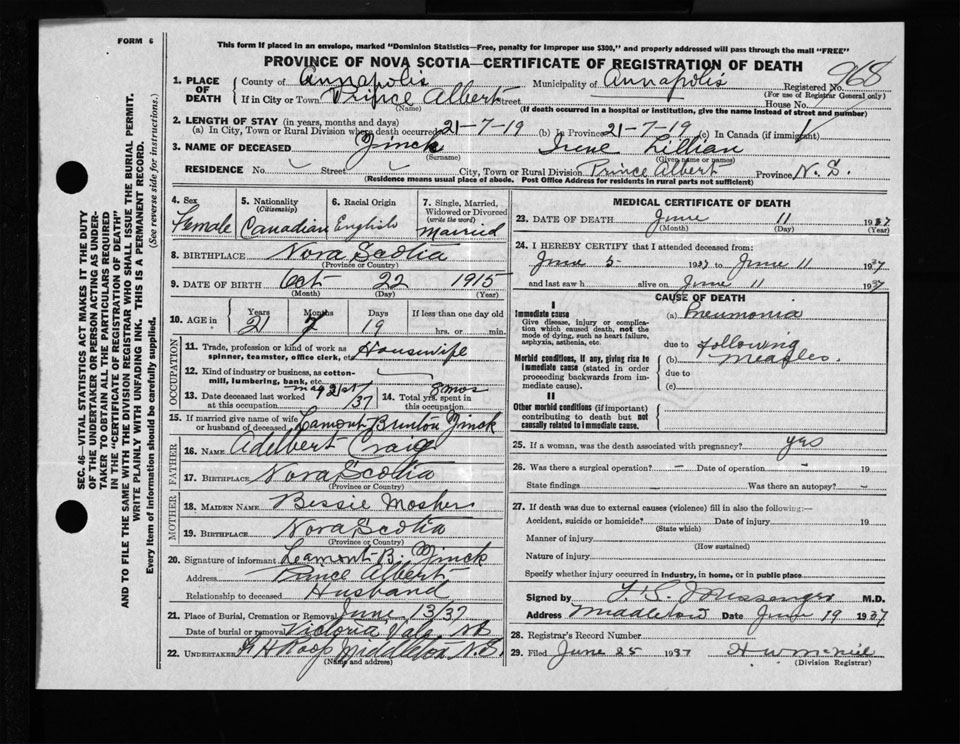 FORM 6
This form if placed in an envelope, marked "Dominion Statistics—Free, penalty for improper use $300," and properly addressed will pass through the mail "FREE"
PROVINCE OF NOVA SCOTIA—CERTIFICATE OF REGISTRATION OF DEATH
968
1. PLACE OF DEATH
County of Annapolis Municipality of Annapolis Registered No.
(For use of Registrar General only)
If in City or Town Prince Albert Street House No.
(Name) (If death occurred in a hospital or institution, give the name instead of street and number)
2. LENGTH OF STAY (in years, months and days)
(a) In City, Town or Rural Division where death occurred 21-7-19 (b) In Province 21-7-19 (c) In Canada (if immigrant)
3. NAME OF DECEASED Zinck Irene Lillian
(Surname) (Given name or names)
RESIDENCE No. Street City, Town or Rural Division Prince Albert Province N.S.
(Residence means usual place of abode. Post Office Address for residents in rural parts not sufficient)
4. Sex Female
5. Nationality (Citizenship) Canadian
6. Racial Origin English
7. Single, Married, Widowed or Divorced (write the word) Married
8. BIRTHPLACE Nova Scotia
(Province or Country)
9. DATE OF BIRTH Oct 22 1915
(Month) (Day) (Year)
10. AGE in Years Months Days If less than one day old
21 7 19 hrs. or min.
OCCUPATION
11. Trade, profession or kind of work as spinner, teamster, office clerk, etc. Housewife
12. Kind of industry or business, as cotton-mill, lumbering, bank, etc.
13. Date deceased last worked at this occupation May 21st/37
14. Total yrs. spent in this occupation 8 mos
15. If married give name of wife or husband of deceased Lamont Burton Zinck
FATHER
16. NAME Adelbert Craig
17. BIRTHPLACE Nova Scotia
(Province or Country)
MOTHER
18. MAIDEN NAME Bessie Mosher
19. BIRTHPLACE Nova Scotia
(Province or Country)
20. Signature of informant Lamont B. Zinck
Address Prince Albert
Relationship to deceased Husband
21. Place of Burial, Cremation or Removal June 13/37
Date of burial or removal Victoria Vale NS
22. UNDERTAKER Middleton N.S.
(Name and address)
MEDICAL CERTIFICATE OF DEATH
23. DATE OF DEATH June 11 1937
(Month) (Day) (Year)
24. I HEREBY CERTIFY that I attended deceased from:
June 5 1937 to June 11 1937
and last saw h alive on June 11 1937
CAUSE OF DEATH
I
Immediate cause
Give disease, injury or complication which caused death, not the mode of dying, such as heart failure, asphyxia, asthenia, etc.
(a) Pneumonia
due to following
Morbid conditions, if any, giving rise to immediate cause (stated in order proceeding backwards from immediate cause).
(b) Measles.
due to
(c)
II
Other morbid conditions (if important) contributing to death but not causally related to immediate cause.
25. If a woman, was the death associated with pregnancy? yes
26. Was there a surgical operation? - Date of operation - 19
State findings Was there an autopsy? -
27. If death was due to external causes (violence) fill in also the following:—
Accident, suicide or homicide? Date of injury 19
(State which)
Manner of injury
(How sustained)
Nature of injury
Specify whether injury occurred in industry, in home, or in public place
Signed by Messenger M.D.
Address Middleton Date June 19 1937
28. Registrar's Record Number
29. Filed June 25 1937 H W McNeil
(Division Registrar)
SEC. 46—VITAL STATISTICS ACT MAKES IT THE DUTY
OF THE UNDERTAKER OR PERSON ACTING AS UNDER-
TAKER TO OBTAIN ALL THE PARTICULARS REQUIRED
IN THE "CERTIFICATE OF REGISTRATION OF DEATH"
AND TO FILE THE SAME WITH THE DIVISION REGISTRAR WHO SHALL ISSUE THE BURIAL PERMIT.
WRITE PLAINLY WITH UNFADING INK. THIS IS A PERMANENT RECORD.
Every item of information should be carefully supplied. (See reverse side for instructions.)